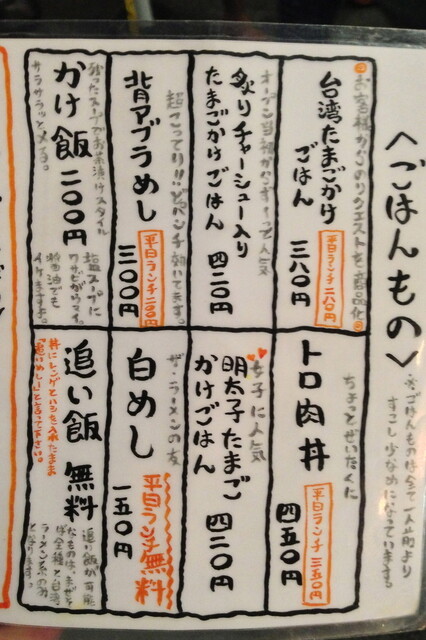 〈ごはんもの〉
※ごはんものは全て一人前より
すこし少なめになっています。
◎お客様からのリクエストを商品化◎
台湾たまごかけ
ごはん
三八〇円
平日ランチ二八〇円
オープン当初からず〜っと人気
炙りチャーシュー入り
たまごかけごはん
四二〇円
超こってり!!どパンチ効いてます。
背アブラめし
三〇〇円
平日ランチ二〇〇円
残ったスープでお茶漬けスタイル
かけ飯 二〇〇円
サラサラッと〆る。
塩スープに
ワサビがウマイ。
醤油でも
イケますよ。
ちょっとぜいたくに
トロ肉丼
四五〇円
平日ランチ三五〇円
女子に人気
明太子たまご
かけごはん
四二〇円
ザ・ラーメンの友
白めし
一五〇円
平日ランチ無料
追い飯 無料
丼にレンゲとハシを入れたまま
「追いめし!」と言って下さい。
追い飯が可能
なものは、まぜそ
ば全種と台湾
ラーメンのみ
となります。